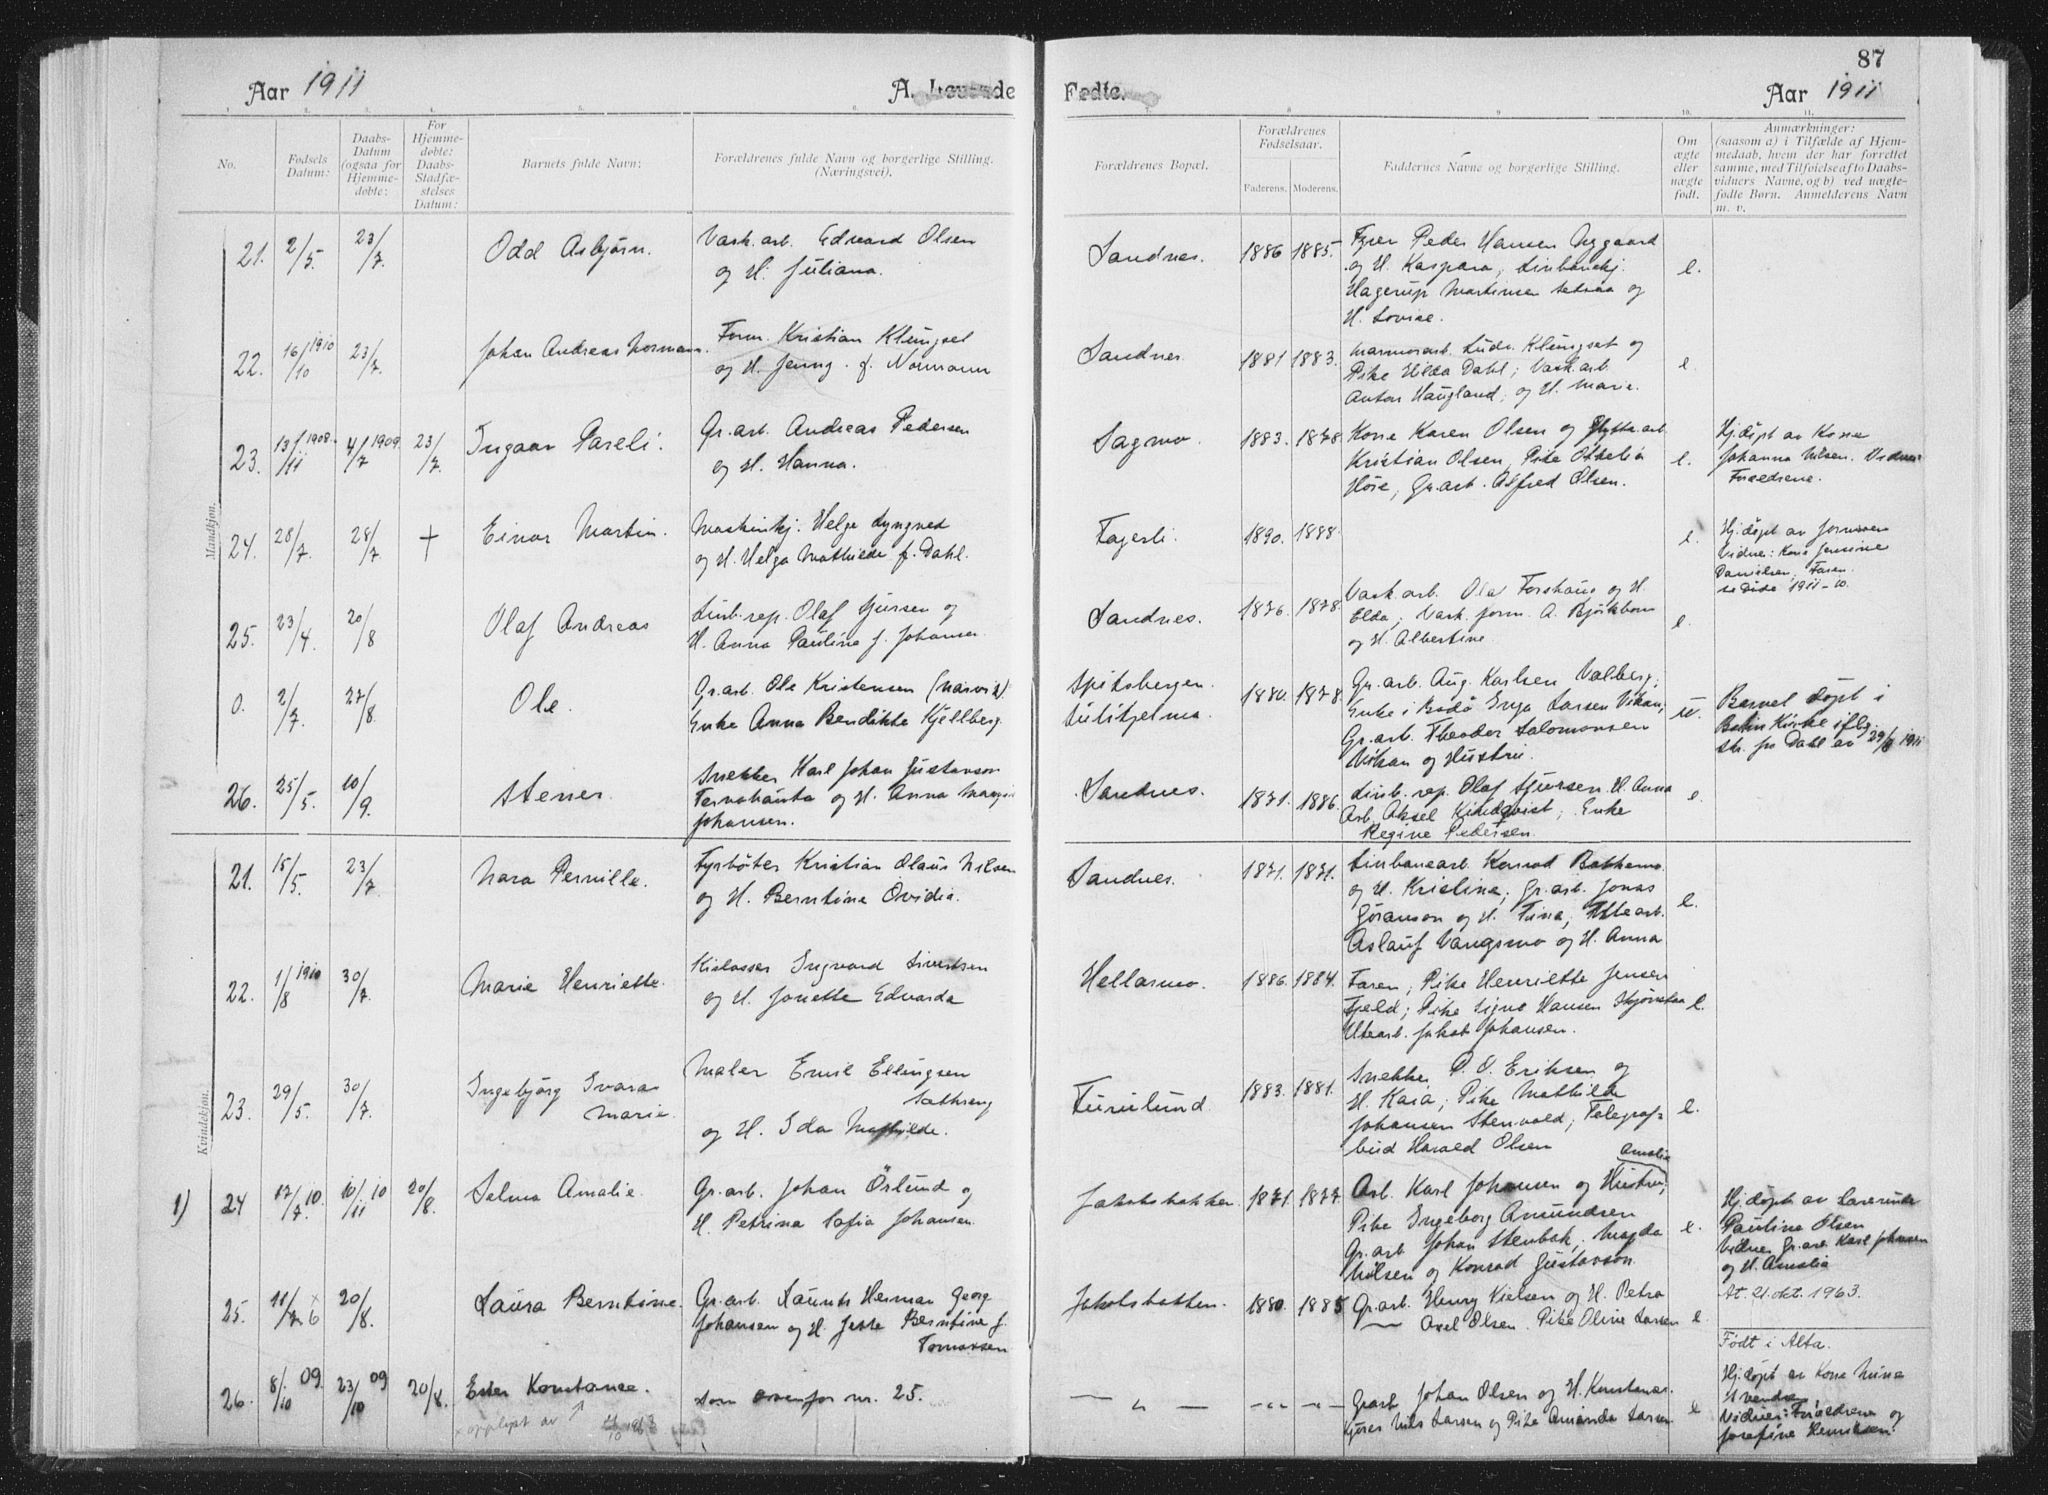 87
Aar 1911
A. Levende
Fødte.
Aar 1911
1. 2. 3. 4. 5. 6. 8 9 10. 11.
No.
Fødsels
Datum:
Daabs-
Datum
(ogsaa for
Hjemme-
døbte:
For
Hjemme-
døbte:
Daabs-
Stadfæ-
stelses
Datum:
Barnets fulde Navn:
Forældrenes fulde Navn og borgerlige Stilling.
(Næringsvei).
Forældrenes Bopæl.
Forældrenes
Fødselsaar.
Faderens. Moderens.
Faddernes Navne og borgerlige Stilling.
Om
ægte
eller
uægte
født.
Anmærkninger:
(saasom a) i Tilfælde af Hjem-
medaab, hvem der har forrettet
samme, med Tilføielse af to Daabs-
vidners Navne, og b) ved uægte-
fødte Børn. Anmelderens Navn
m. v.
Mandkjøn.
21. 2/5. 23/7. Odd Asbjørn.
Vask.arb. Edvard Olsen
og H. Juliana.
Sandnes. 1886 1885.
Fyrer Peder Hansen Nygaard
og H. Kaspara, Linbanekj.
Hagerup Martinsen Setsaa og
H. Lovise.
e.
22. 16/10 1910 23/7. Johan Andreas Normann.
Form. Kristian Klungset
og H. Jenny f. Normann
Sandnes. 1881 1883.
Marmorarb. Ludv. Klungset og
Pike Hilda Dahl; Vask.arb.
Anton Haugland, og H. Marie.
e.
23. 13/11 1908. 4/7 1909 23/7. Ingvar Pareli.
Gr.arb. Andreas Pedersen
og H. Hanna.
Sagmo. 1883. 1878
Kone Karen Olsen og Hytte.arb.
Kristian Olsen, Pike Othelia
Höse, Gr.arb. Alfred Olsen.
e.
Hj.døpt av Kone
Johanna Nilsen. Vidner
Forældrene.
24. 28/7. 28/7. + Einar Martin.
Maskinkj. Helge Lyngved
og H. Helga Mathilde f. Dahl.
Fagerli. 1890. 1888.
e.
Hj.døpt av Jormoren
Vidner: Kone Jensine
Danielsen, Faren.
se Døde 1911 – 10.
25. 23/4. 20/8 Olaf Andreas
Linb.rep. Olaf Sjursen og
H. Anna Pauline f. Johansen
Sandnes. 1876. 1878.
Vask.arb. Ola Forshaug og H.
Elda, Vask.form. A. Björkbom
og H. Albertine
e.
0. 2/7. 27/8. Ole.
Gr.arb. Ole Kristensen (Narvik)
Enke Anna Bendikte Kjellberg.
Spitsbergen.
Sulitjelma. 1880. 1878
Gr.arb. Aug. Karlsen Valberg;
Enke i Bodø Inga Larsen Vikan,
Gr.arb. Theodor Salomonsen
Vikan og Hustru.
u.
Barnet døpt i
Bodin Kirke iflg.
Skr. fr Dahl av 29/8 1911
26. 25/5. 10/9. Stener.
Snekker Karl Johan Gustavson
Tervahauta og H. Anna Margit
Johansen.
Sandnes. 1871. 1886.
Linb.rep. Olaf Sjursen. H. Anna
Arb. Aksel Kihlqvist; Enke
Regine Pedersen.
e.
Kvindekjøn.
21. 15/5. 23/7. Nara Pernille.
Fyrbøter Kristian Olaus Nilsen
og H. Berntine Ovidia.
Sandnes. 1871. 1871.
Linbanearb. Konrad Bakkemo
og H. Kristine; Gr.arb. Jonas
Göranson og H. Trina, Utearb.
Aslauf Vangsmo og H. Anna
e.
22. 1/8 1910 30/7. Marie Henriette.
Kislosser Ingvard Sivertsen
og H. Jonette Edvarda
Hellarmo. 1886. 1884.
Faren; Pike Henriette Jensen
Fjeld; Pike Signe Hansen Skjönstaa
Utearb. Jakob Johansen.
e.
23. 29/5. 30/7. Ingebjörg Svara
Marie.
Maler Emil Ellingsen
Sæthreng
og H. Ida Mathilde.
Furulund. 1883. 1881.
Snekker P. O. Eriksen og
H. Kaia; Pike Mathilde
Johansen Stenvold; Telegraf-
bud Harald Olsen
e.
1) 24 17/7. 10. 10/11 10 20/8. Selma Amalie.
Gr.arb. Johan Öslund og
H. Petrina Sofia Johansen.
Jakobsbakken 1871. 1877.
Amalie
Arb. Karl Johansen og Hustru,
Pike Ingeborg Amundsen
Gr.arb Johan Stenbak, Magda
Nilsen og Konrad Gustavson
e.
Hj.døpt av
Pauline Olsen
Vidner Gr.arb. Karl Johansen
og H. Amalia
25. 11/7. x 6 20/8. Laura Berntine.
Gr.arb. Laurits Herman Georg
Johansen og H. Jette Berntine f.
Tomassen
Jakobsbakken. 1880. 1885
Gr.arb. Henry Nielsen og H. Petra
— Axel Olsen. Pike Oline Larsen
e.
At. 21. okt. 1963.
Født i Alta.
26. 8/10 09. 23/10 09 20/8. Ester Konstanse.
som ovenfor nr. 25.
— „ — - „ - - „ -
Gr.arb Johan Olsen og H. Konstanse.
Kjører Nils Larsen og Pike Amanda Larsen
e
Hj.døpt av Kone Nina
Svendsen
Vidner: Forældrene og
Josefine Henriksen.
x opplyst av ↑ 21/10 1963